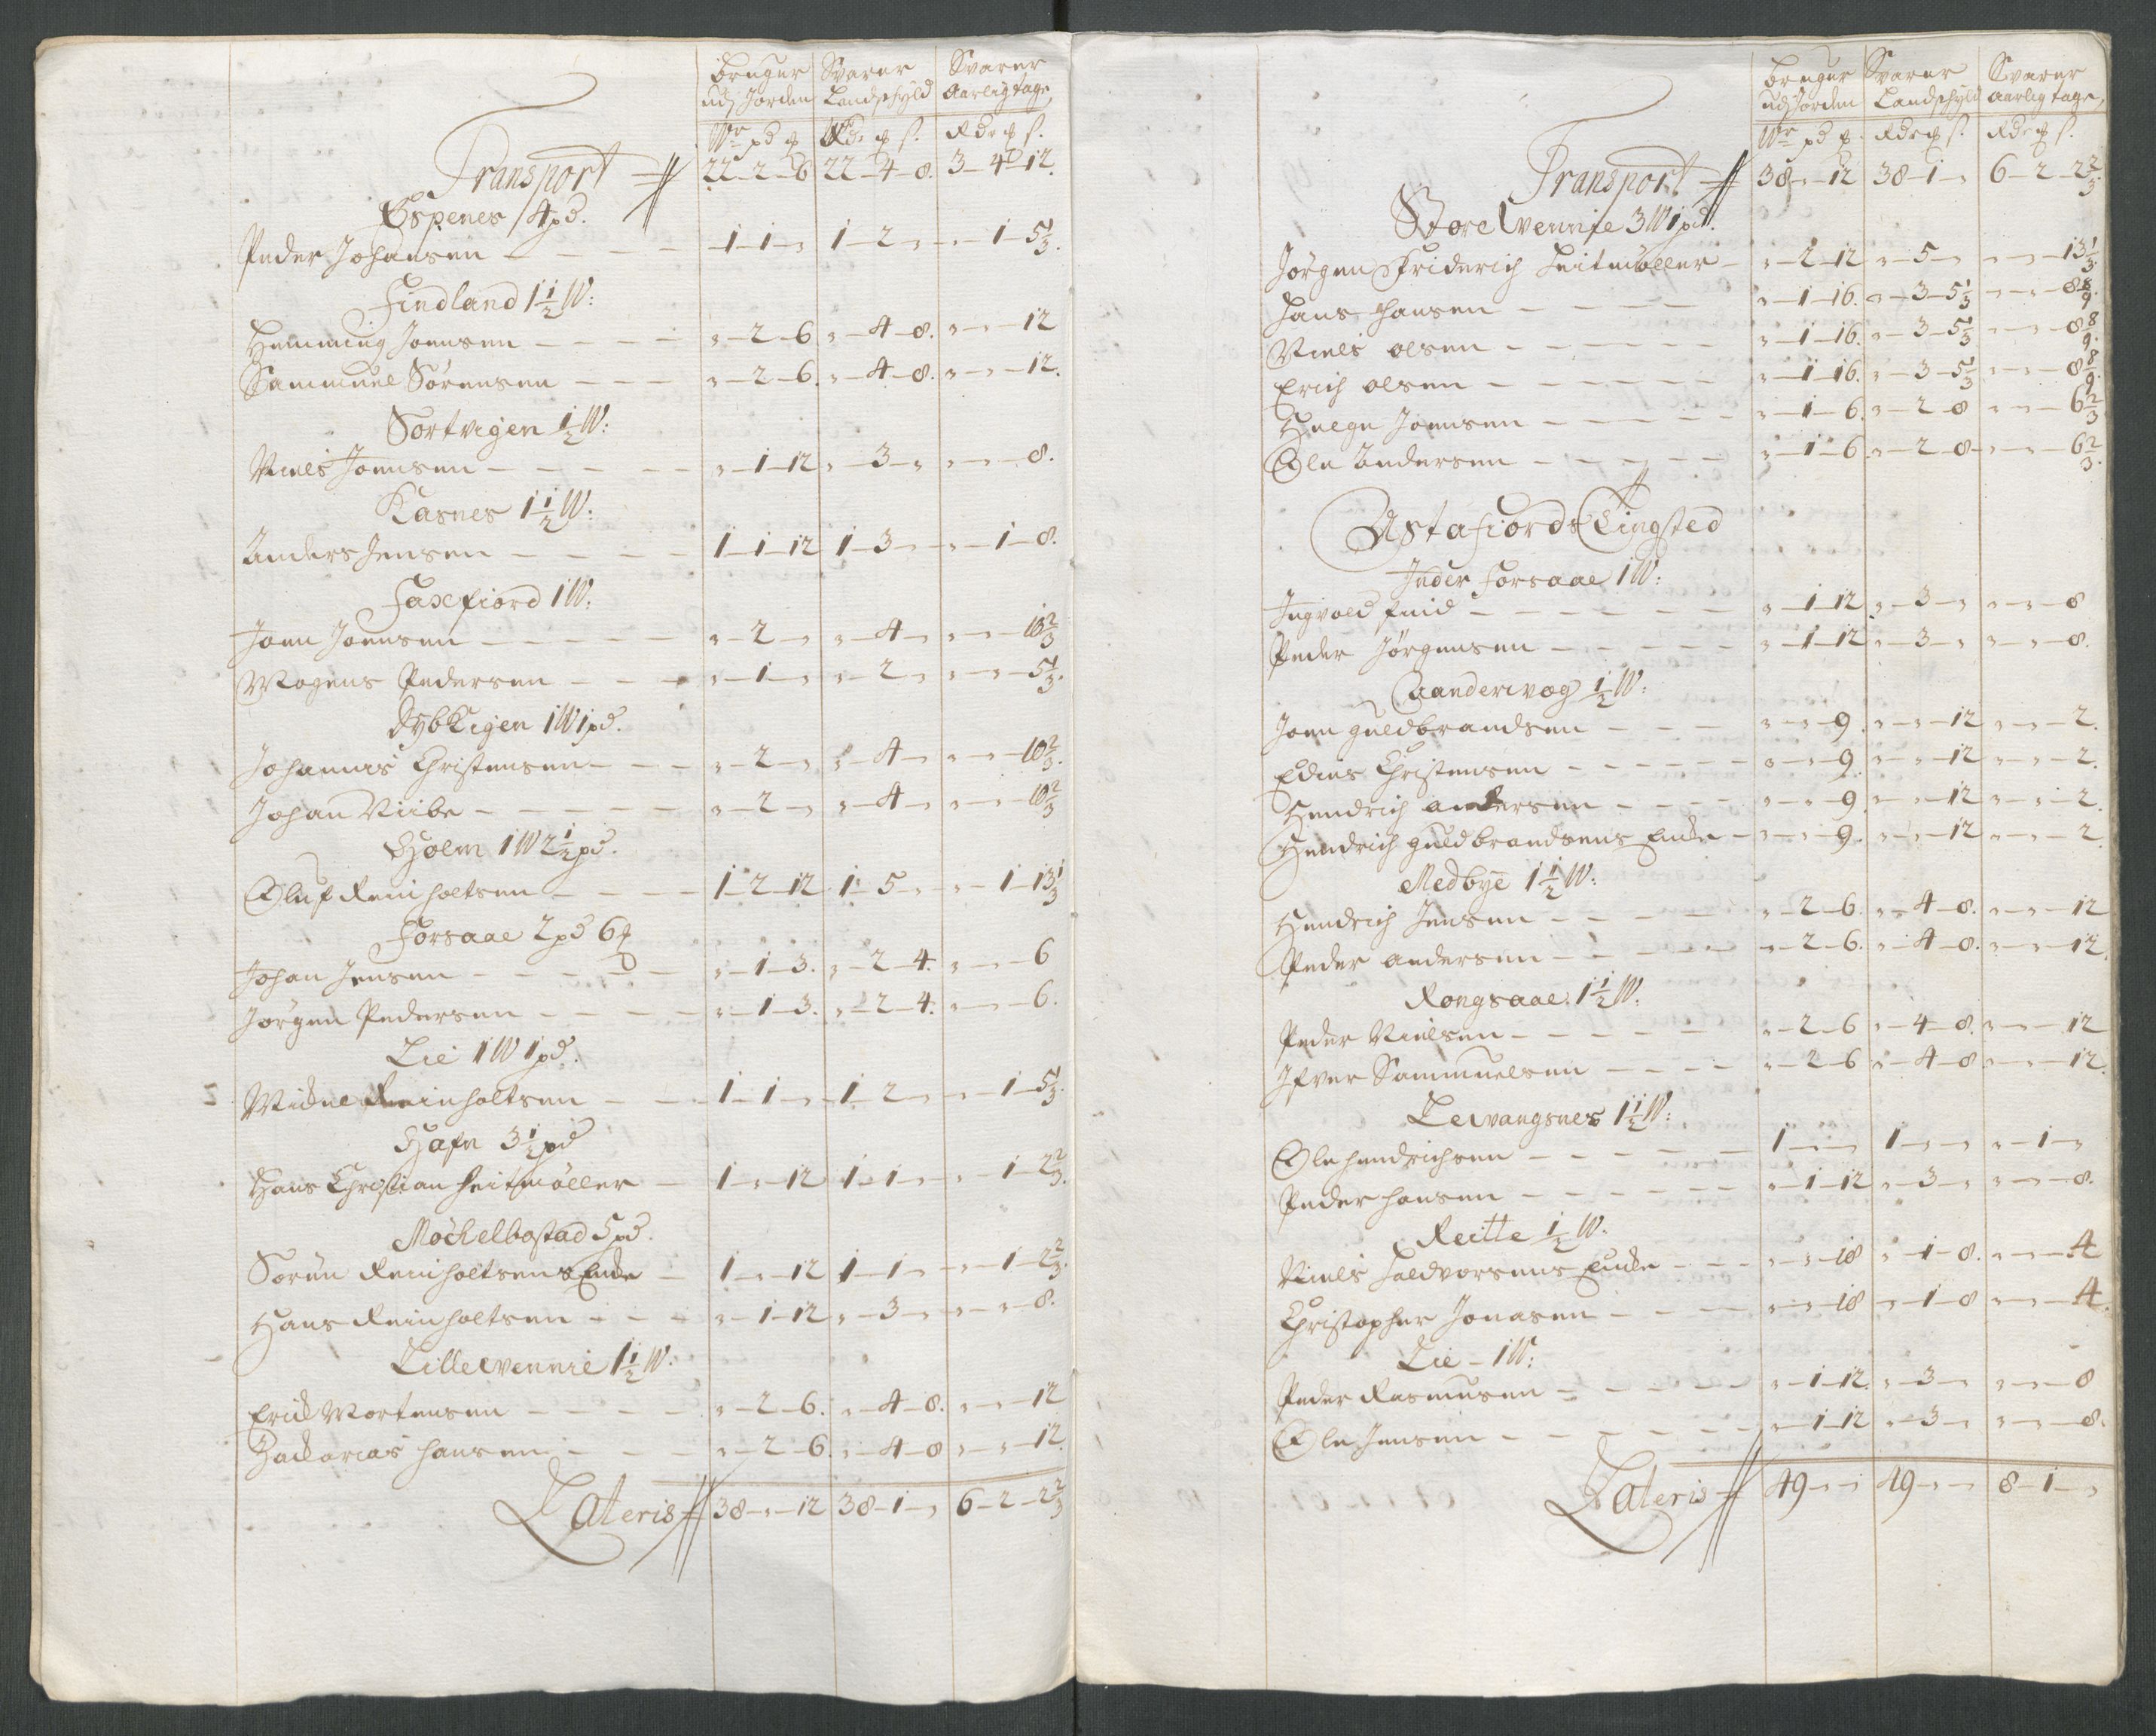 bruger Svarer Svarer
udj Jorden Landschyld Aarlig tage
W pd ƺ Rdr ƺ s. Rdr ƺ s.
Transport 22-2-6 22-4-8. 3-4-12.
Espenes 4pd.
Peder Johansen - - - -1-1-" 1-2-" "-1-5 1/3.
Findland 1 1/2 W:
Hemming Joensen - - - - "-2-6 "-4-8. "-"-12
Sammuel Sörensen - - - "-2-6. "-4-8. "-"-12.
Sortvigen 1/2 W:
Niels Joensen - - - - - "-1-12 "-3-" "-"-8.
Kasnes 1 1/2 W:
Anders Jensen - - - - - 1-1-12 1-3-" "-1-8.
Faxefiord 1 W:
Joen Joensen - - - - - "-2-" "-4-" "-"-10 2/3
Mogens Pedersen - - - "-1-" "-2-" "-"-5 1/3.
Dybvigen 1W 1pd.
Johannes Christensen - - - "-2-" "-4-" "-"-10 2/3.
Johan Viibe - - - - - - "-2-" "-4-" "-"-10 2/3
Holm 1W 2 1/2 pd.
Oluf Reinholtsen - - - - 1-2-12 1-5-" "-1-13 1/3
Forsaae 2pd 6ƺ
Johan Jensen - - - - - "-1-3. "-2-4. "-"-6
Jörgen Pedersen - - - - "-1-3. "-2-4. "-"-6.
Lie 1W 1pd.
Mickel Reinholtsen - - - 1-1-" 1-2-" "-1-5 1/3.
Hafn 3 1/2 pd
Hans Christian Heitmöller - 1-"-12 1-1-" "-1-2 2/3.
Möckelbostad 5pd.
Sören Reinholtsens Encke - 1-"-12 1-1-" "-1-2 2/3.
Hans Reinholtsen - - - "-1-12 "-3-" "-"-8.
Lillewennie 1 1/2 W:
Erick Mortensen - - - - "-2-6. "-4-8. "-"-12
Zackarias Hansen - - - "-2-6. "-4-8 "-"-12
Lateris 38-"-12 38-1-" 6-2-2 2/3
bruger Svarer Svarer
udj Jorden Landschyld aarlig tage
W pd ƺ. Rdr ƺ s. Rdr ƺ s.
Transport 38-"-12 38-1-" 6-2-2 2/3.
Store Wennie 3W 1pd.
Jörgen Friderich Heitmöller - "-2-12 "-5-" "-"-13 1/3.
Hans Hansen - - - - - "-1-16. "-3-5 1/3 "-"-8 8/9.
Niels Olsen - - - - - - "-1-16. "-3-5 1/3 "-"-8 8/9.
Erich Olsen - - - - - - "-1-16. "-3-5 1/3 "-"-8 8/9.
Helge Joensen - - - - - "-1-6. "-2-8 "-"-6 2/3
Ole Andersen - - - - - "-1-6. "-2-8- "-"-6 2/3.
Astafiords Tingsted
Inder Forsaae 1W:
Ingvold Enid - - - - - - "-1-12. "-3-" "-"-8
Peder Jörgensen - - - - - "-1-12 "-3-" "-"-8.
Gandervog 1/2 W:
Joen Guldbrandsen - - - "-"-9. "-"-12 "-"-2.
Edies Christensen - - - - - "-"-9. "-"-12 "-"-2.
Hendrich Andersen - - - - "-"-9. "-"-12 "-"-2.
Hendrich Guldbrandsens Encke - "-"-9. "-"-12 "-"-2.
Medbye 1 1/2 W:
Hendrich Jensen - - - - "-2-6. "-4-8. "-"-12
Peder Andersen - - - - "-2-6. "-4-8. "-"-12.
Rongsaae. 1 1/2 W.
Peder Nielsen - - - - - "-2-6 "-4-8. "-"-12
Ifver Sammuelsen - - - - "-2-6 "-4-8. "-"-12.
Lewangsnes 1 1/2 W:
Ole Hendrichsen - - - - - 1-"-" 1-"-" "-1-"
Peder Hansen - - - - - - "-1-12 "-3-" "-"-8.
Reitte 1/2 W.
Niels Haldvorsens Encke - - - "-"-18 "-1-8. "-"-4
Christopher Jonasen - - - - "-"-18 "-1-8 "-"-4.
Lie - 1W:
Peder Rasmusen - - - - - "-1-12. "-3-" "-"-8
Ole Jensen - - - - - - "-1-12 "-3-" "-"-8.
Lateris 49-"-" 49-"-" 8-1-"